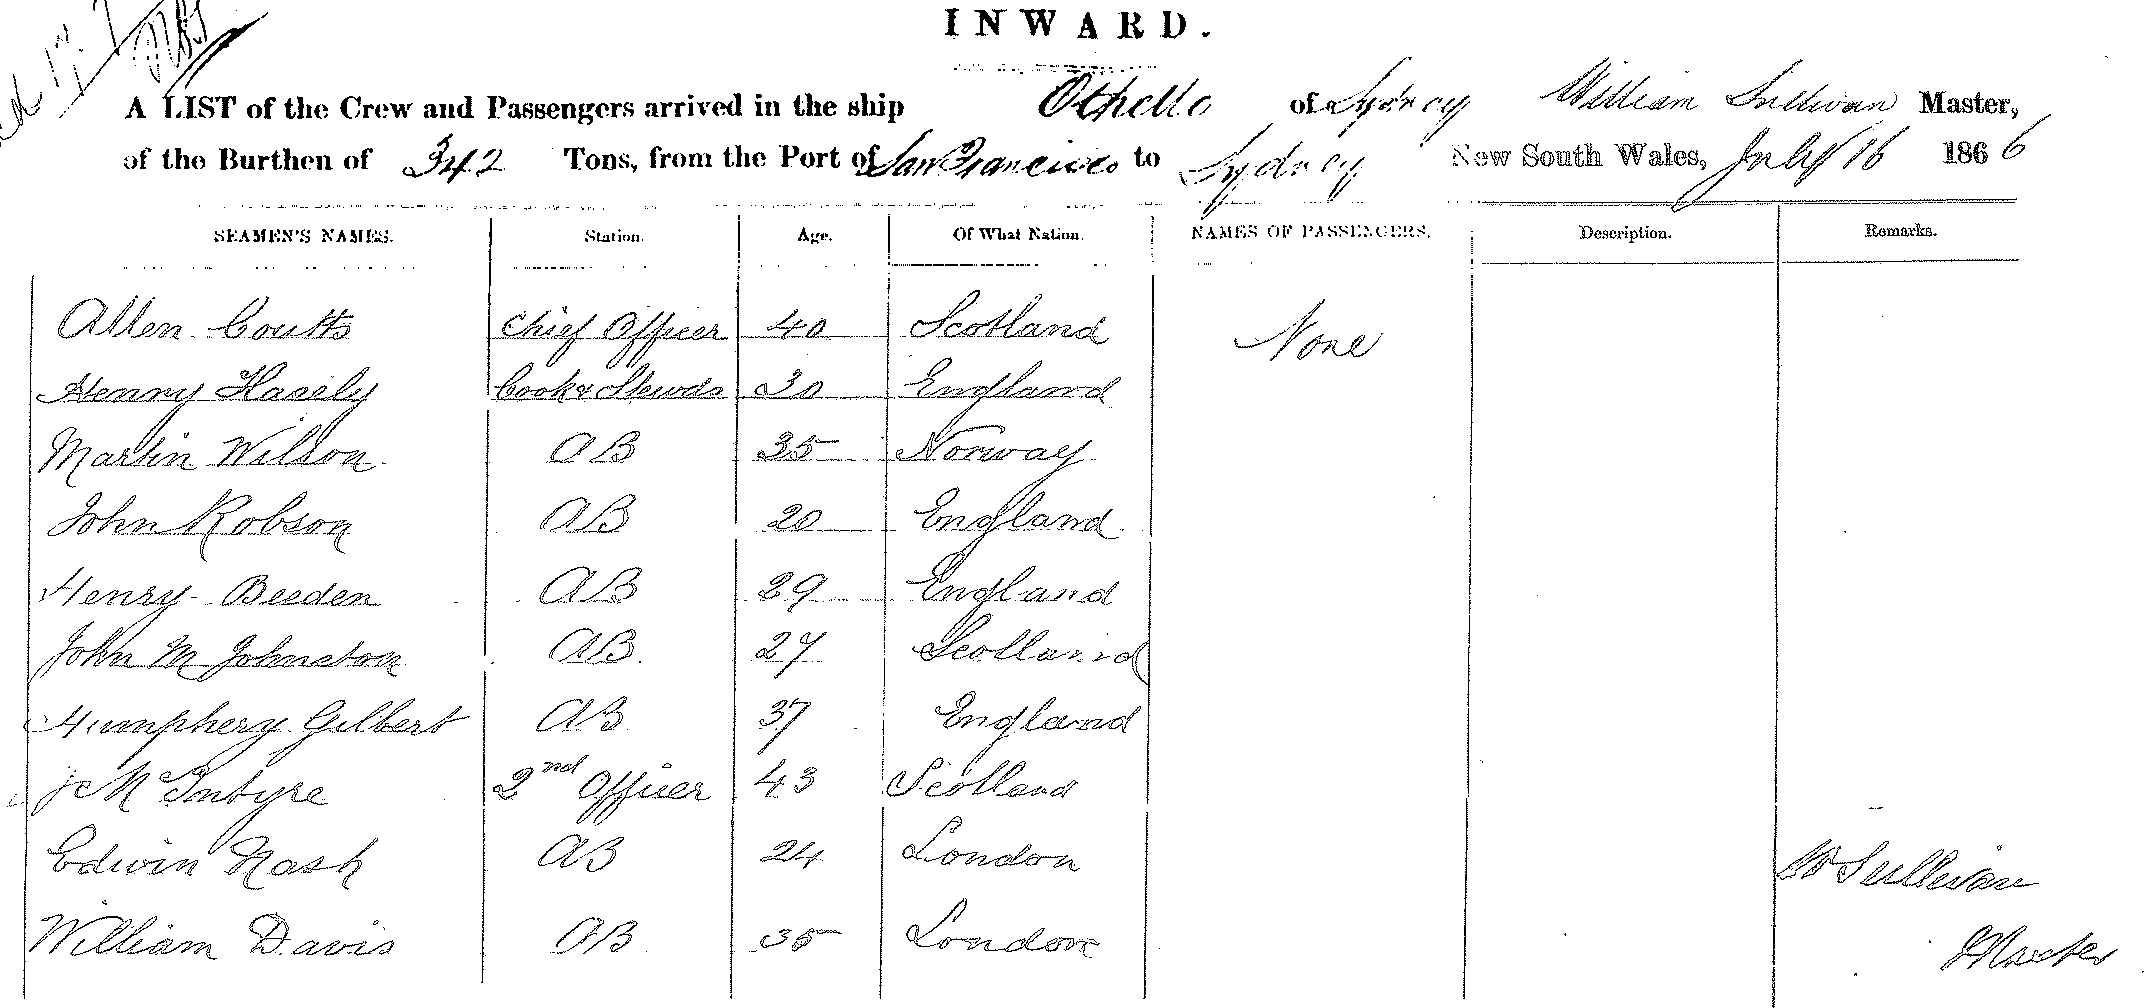 INWARD.
A LIST of the Crew and Passengers arrived in the ship Othello of Sydney William Sullivan Master,
of the Burthen of 342 Tons, from the Port of San Francisco to Sydney New South Wales, July 16 1866
SEAMEN'S NAMES. Station. Age. Of What Nation. NAMES OF PASSENGERS. Description. Remarks.
Allen Coutts Chief Officer 40 Scotland None
Henry Hasely Cook & Stewds 30 England
Martin Wilson AB 35 Norway
John Robson AB 20 England
Henry Beeden AB 29 England
John M Johnston AB 27 Scotland
Humphery Gilbert AB 37 England
J McIntyre 2nd Officer 43 Scotland
Edwin Nash AB 24 London W Sullivan
William Davis AB 35 London Master